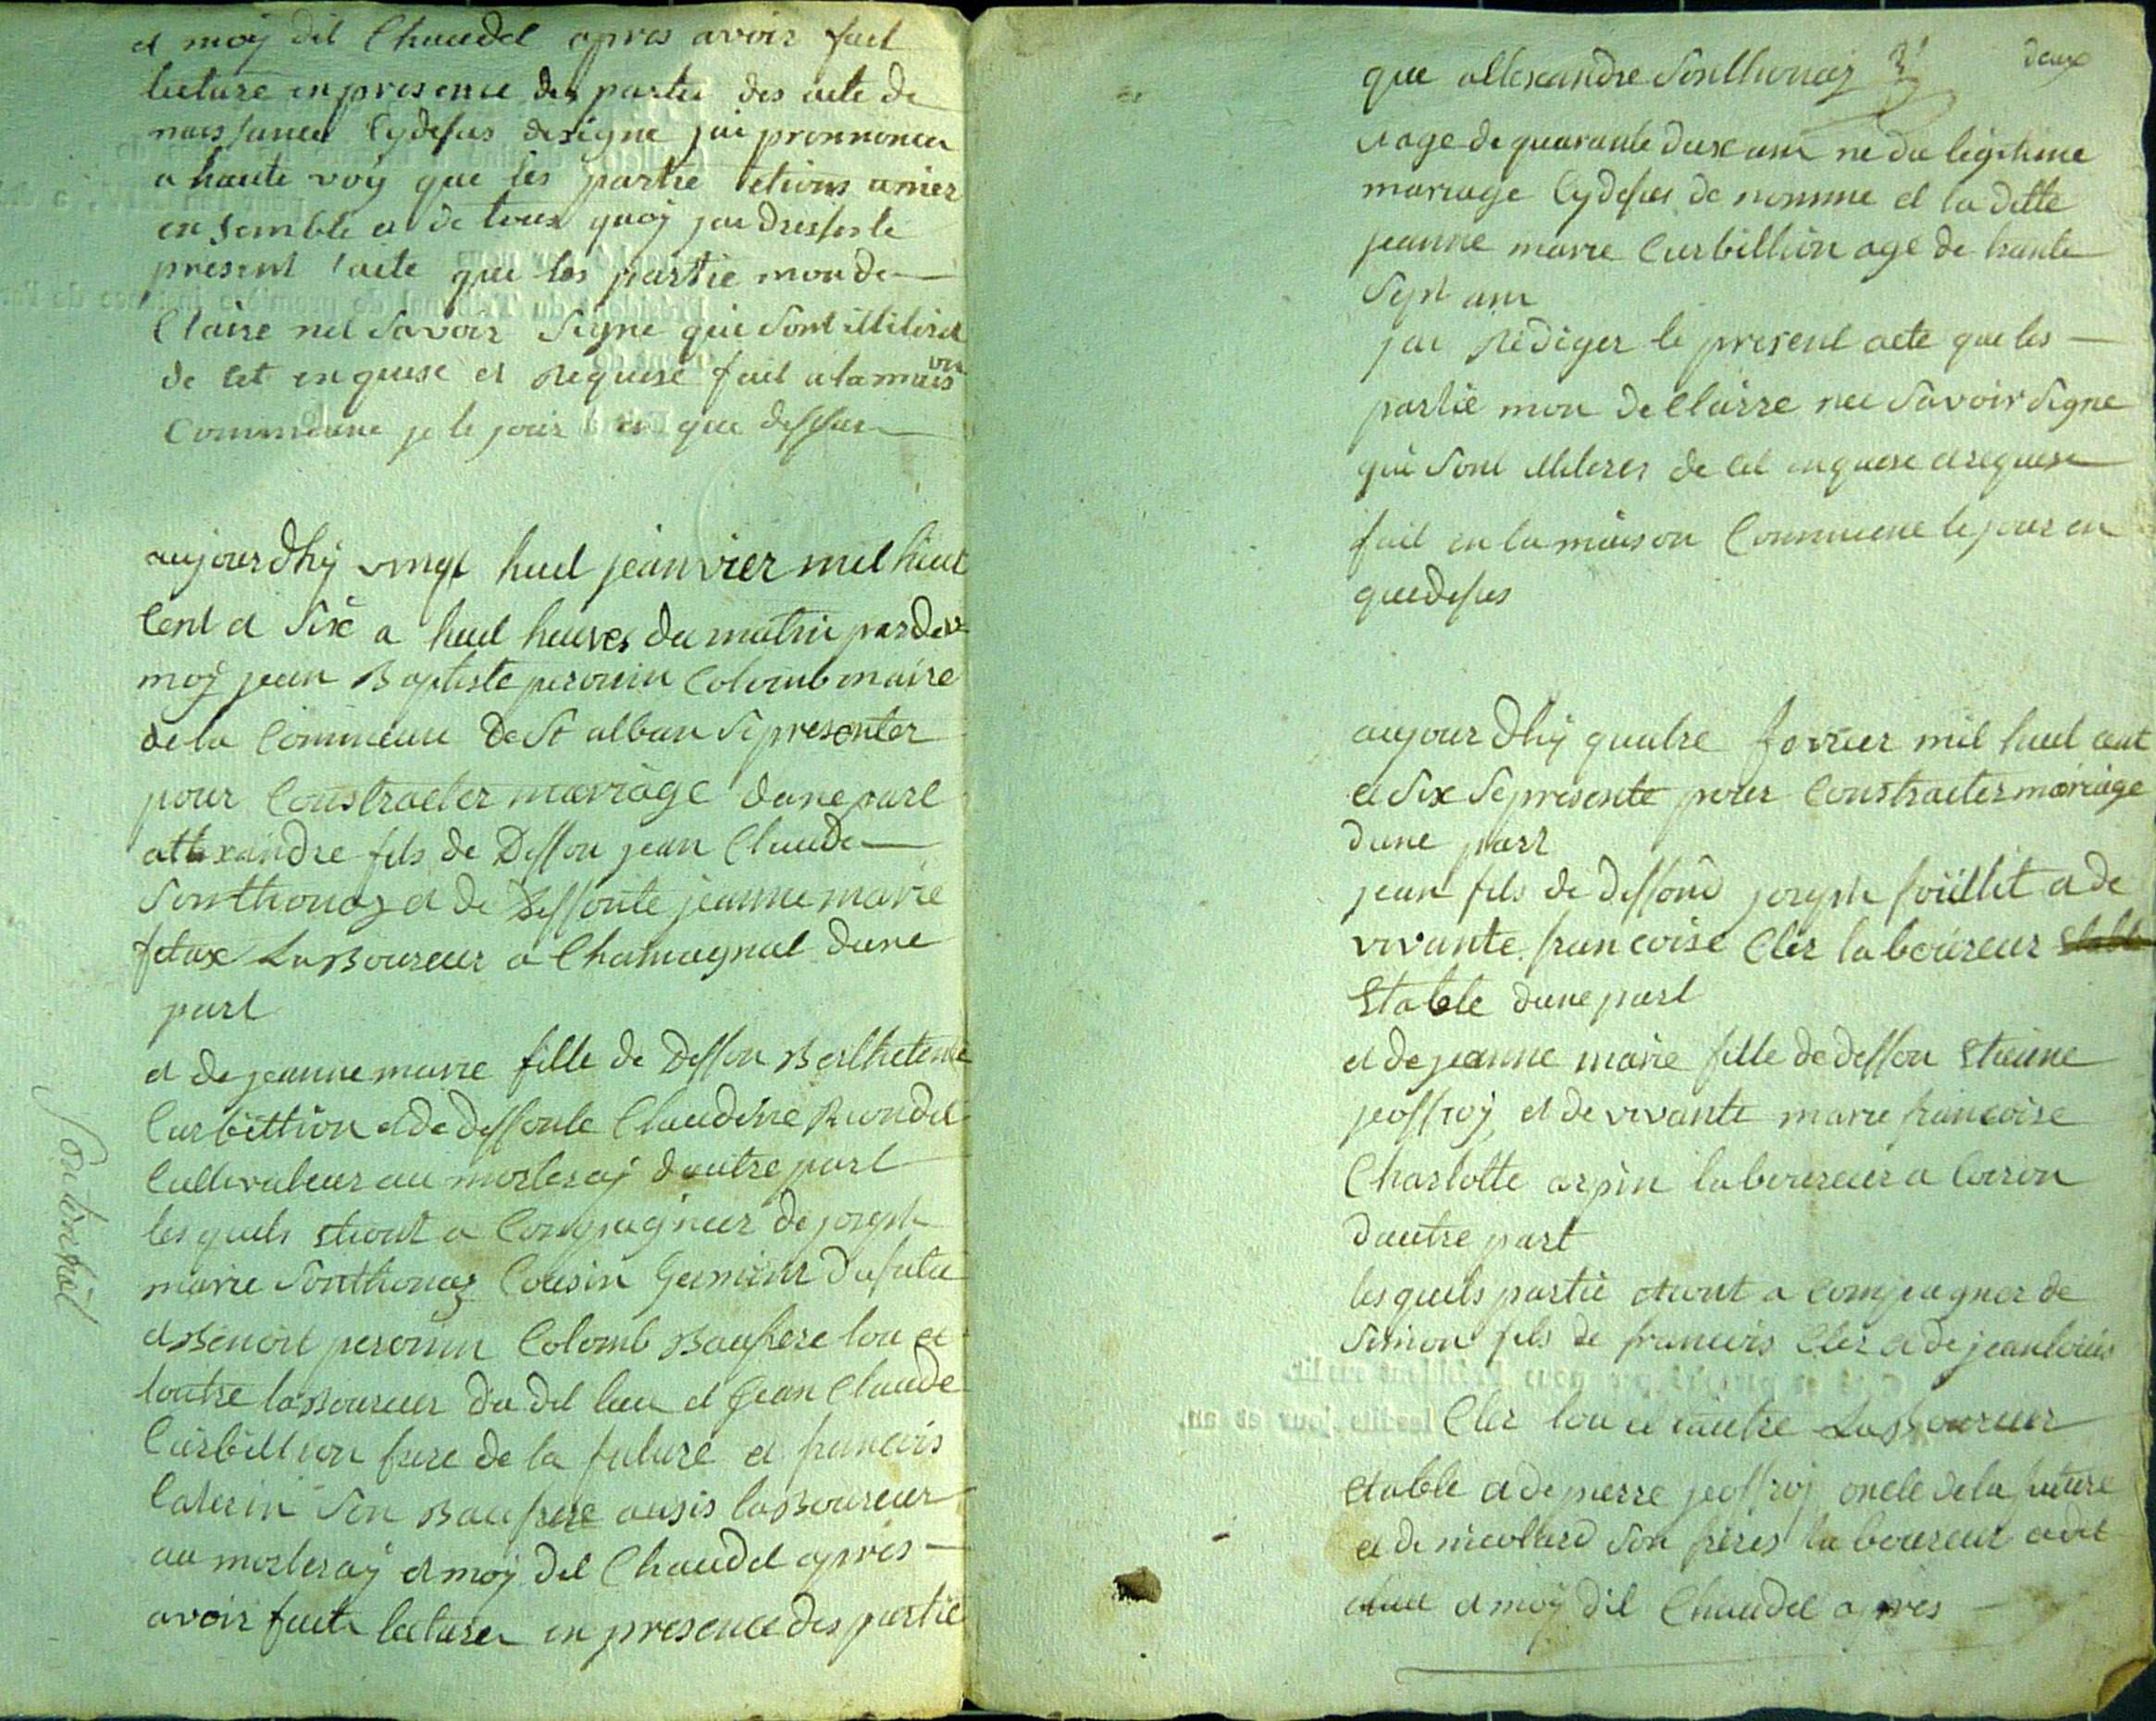 et moÿ dit Chaudel apres avoir fait
lecture en presence des partie des acte de
naissance Cydesus designe jai prononcer
a haute voÿ que les partie etions unier
ensemble et de toux quoÿ jai dresser le
present l'acte que les partie mon de
Claire nel Savoir Signe que Sont illiteret
de cet enquise et Requise fait a la mais
Commeune je le jour en que dessus
aujourdhÿ vingt huit jeanvier mil huit
Cent et Six a huit heures du matin par dev
moÿ jean Baptiste perouin Colomb maire
de la Commeune de St alban Se presenter
pour Constracter mariage dune part
allexandre fils de Deffon jean Claude
Sonthonaz et de Deffonte jeanne marie
fetax LaBoureur a Chamagnat dune
part
et de jeanne marie fille de Deffon Berthelemie
Curbillion et de deffonte Claudine Riondel
Cultivateur au morteraÿ dautre part
lesquels etiont a Compagneer de joseph
marie Sonthonaz Cousin Germint du futur
et Benoit perouin Colomb Baufrere lon et
lautre laBoureur du dit lieu et Jean Claude
Curbillion frere de la future et francois
Caterin Son Baufrere ausis laBoureur
au morteraÿ et moÿ dit Chaudel apres
avoir faite lecture en presence des partie
deux
que allexandre Sonthonaz
et age de quarante deux ans ne du legitime
mariage Cydesus de nomme et la ditte
jeanne marie Curbillion age de trante
Sept ans
jai Rediger le present acte que les
partie mon de Clairre nee Savoir Signe
qui Sont illiteres de cet enquese et requese
fait en la maison Commeune le jour en
quedesus
aujourdhÿ quatre fevrier mil huit cent
et Six Se presente pour Constracter mariage
dune part
jean fils de deffond joseph foüillit et de
vivante francoise Cler laboureur
Etable dune part
et de jeanne marie fille de deffon Etienne
jeoffroÿ et de vivante marie francoise
Charlotte arpin laboureur a Coiron
dautre part
lesquels partie etiont a Compagner de
Simon fils de francois Cler et de jean louis
Cler lon et lautre LaBoureur
etable et de pierre jeoffroÿ oncle de la future
et de nicolard Son freres laboureur audit
lieu et moÿ dit Chaudel apres